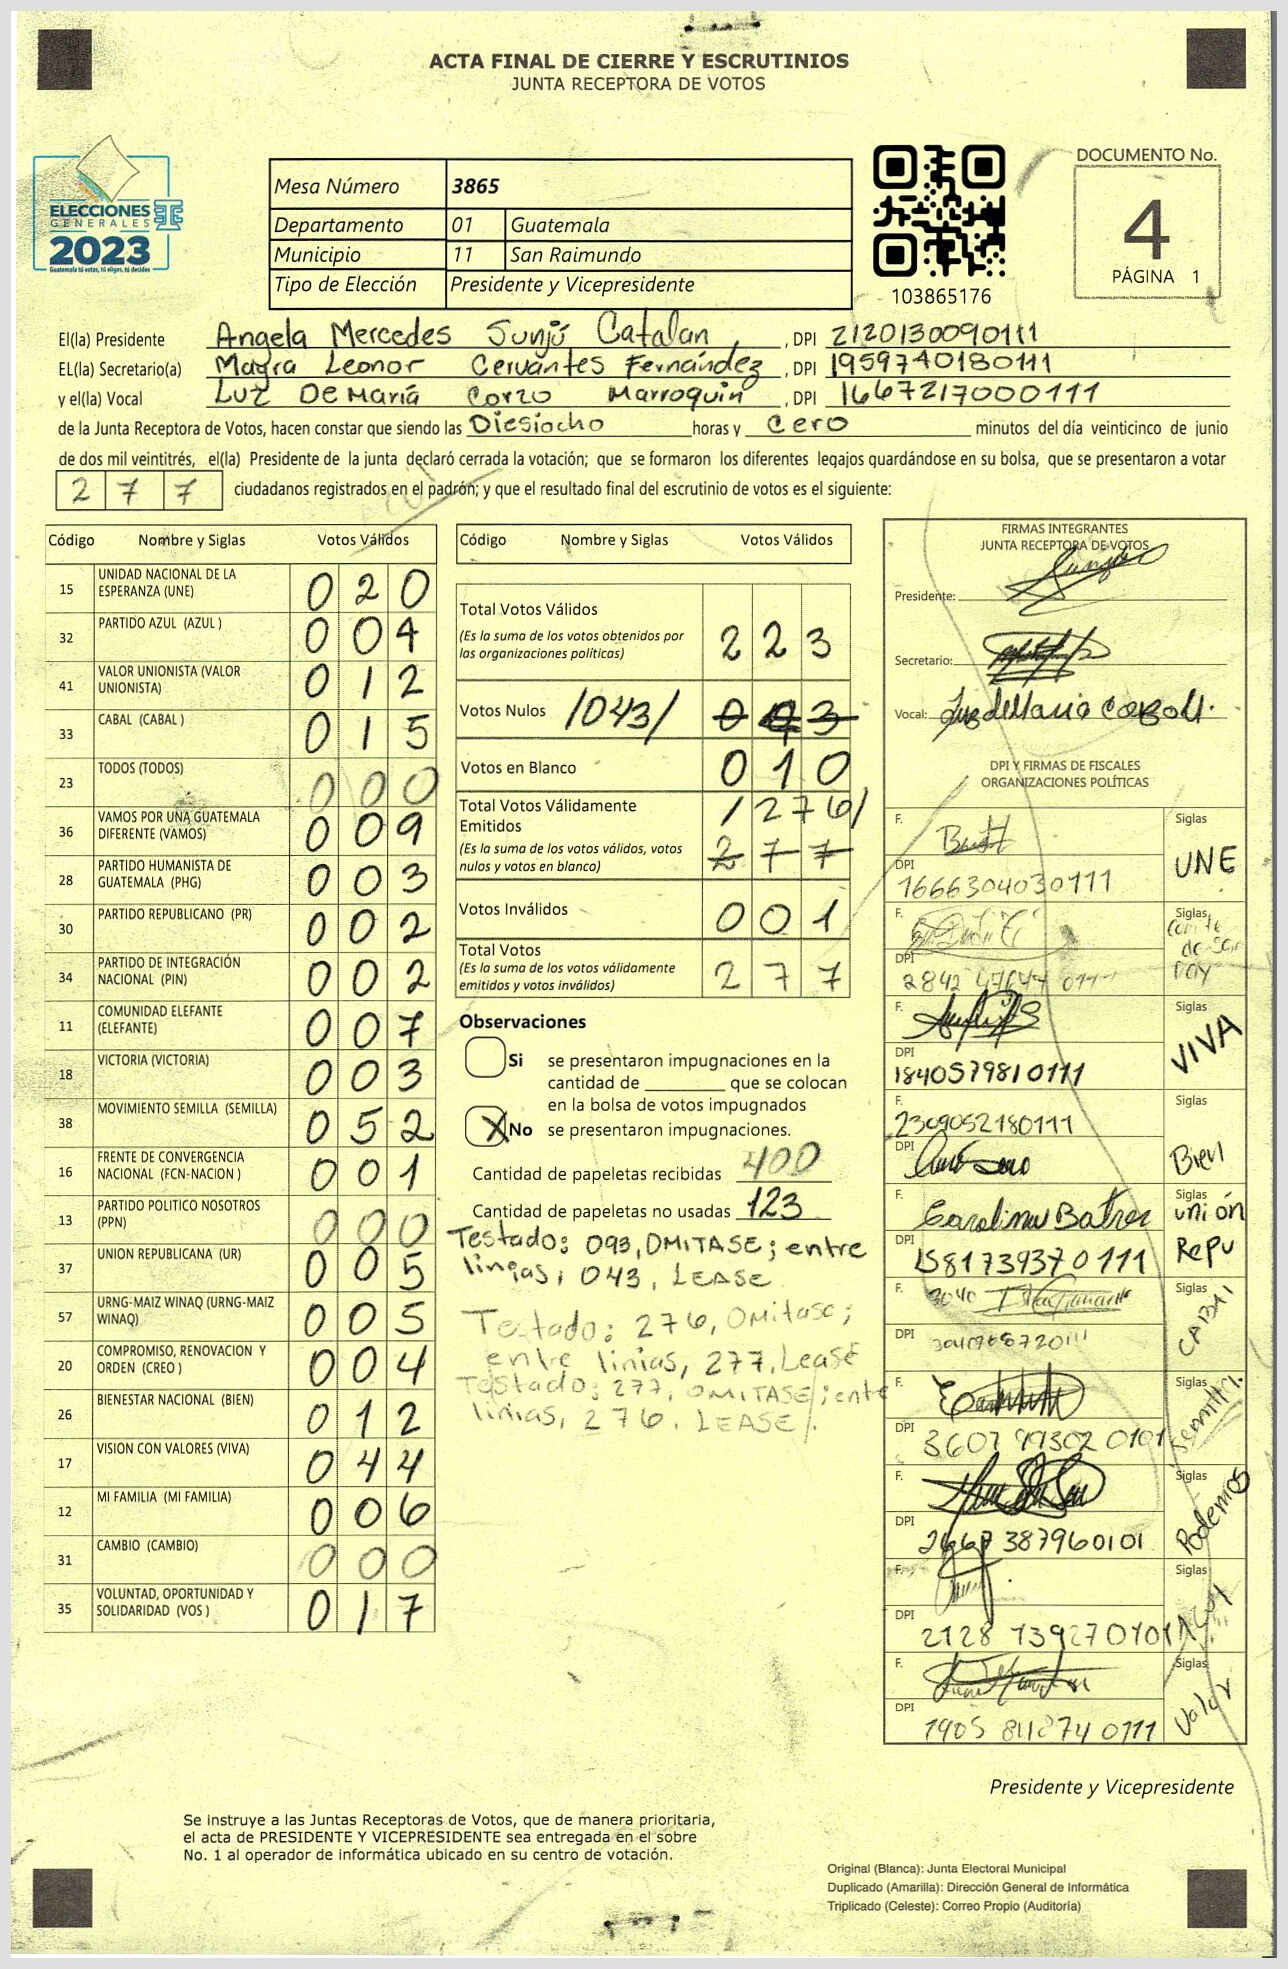 ACTA FINAL DE CIERRE Y ESCRUTINIOS
JUNTA RECEPTORA DE VOTOS
ELECCIONES
GENERALES
2023
Guatemala tú votas, tú eliges, tú decides
Mesa Número 3865
Departamento 01 Guatemala
Municipio 11 San Raimundo
Tipo de Elección Presidente y Vicepresidente
103865176
DOCUMENTO No.
4
PÁGINA 1
El(la) Presidente Angela Mercedes Sunjú Catalan, DPI 2120130090111
EL(la) Secretario(a) Mayra Leonor Cervantes Fernández, DPI 1959740180111
y el(la) Vocal Luz De María Corzo Marroquin, DPI 1667217000111
de la Junta Receptora de Votos, hacen constar que siendo las Diesiocho horas y cero minutos del día veinticinco de junio
de dos mil veintitrés, el(la) Presidente de la junta declaró cerrada la votación; que se formaron los diferentes legajos guardándose en su bolsa, que se presentaron a votar
277 ciudadanos registrados en el padrón; y que el resultado final del escrutinio de votos es el siguiente:
Código Nombre y Siglas Votos Válidos
15 UNIDAD NACIONAL DE LA ESPERANZA (UNE) 020
32 PARTIDO AZUL (AZUL ) 004
41 VALOR UNIONISTA (VALOR UNIONISTA) 012
33 CABAL (CABAL ) 015
23 TODOS (TODOS) 000
36 VAMOS POR UNA GUATEMALA DIFERENTE (VAMOS) 009
28 PARTIDO HUMANISTA DE GUATEMALA (PHG) 003
30 PARTIDO REPUBLICANO (PR) 002
34 PARTIDO DE INTEGRACIÓN NACIONAL (PIN) 002
11 COMUNIDAD ELEFANTE (ELEFANTE) 007
18 VICTORIA (VICTORIA) 003
38 MOVIMIENTO SEMILLA (SEMILLA) 052
16 FRENTE DE CONVERGENCIA NACIONAL (FCN-NACION ) 001
13 PARTIDO POLITICO NOSOTROS (PPN) 000
37 UNION REPUBLICANA (UR) 005
57 URNG-MAIZ WINAQ (URNG-MAIZ WINAQ) 005
20 COMPROMISO, RENOVACION Y ORDEN (CREO ) 004
26 BIENESTAR NACIONAL (BIEN) 012
17 VISION CON VALORES (VIVA) 044
12 MI FAMILIA (MI FAMILIA) 006
31 CAMBIO (CAMBIO) 000
35 VOLUNTAD, OPORTUNIDAD Y SOLIDARIDAD (VOS ) 017
Código Nombre y Siglas Votos Válidos
Total Votos Válidos 223
(Es la suma de los votos obtenidos por
las organizaciones políticas)
Votos Nulos /043/ 093
Votos en Blanco 010
Total Votos Válidamente /276/
Emitidos
(Es la suma de los votos válidos, votos 277
nulos y votos en blanco)
Votos Inválidos 001
Total Votos
(Es la suma de los votos válidamente 277
emitidos y votos inválidos)
Observaciones
Si se presentaron impugnaciones en la
cantidad de ________ que se colocan
en la bolsa de votos impugnados
X No se presentaron impugnaciones.
Cantidad de papeletas recibidas 400
Cantidad de papeletas no usadas 123
Testado: 093, OMITASE; entre
linias, 043, LEASE
Testado: 276, Omitase;
entre linias, 277, Lease
Testado: 277, OMITASE; ente
linias, 276, LEASE/.
FIRMAS INTEGRANTES
JUNTA RECEPTORA DE VOTOS
Presidente:
Secretario:
Vocal: Luz de Maria Corzo M.
DPI Y FIRMAS DE FISCALES
ORGANIZACIONES POLÍTICAS
F. Siglas
UNE
DPI
1666304030111
F. Siglas
DPI
F. Siglas
VIVA
DPI
1840579810111
F. Siglas
2309052180111
DPI
Bien
F. Siglas
Carolina Batres unión
DPI Repu
1581739370111
F. Siglas
CABAL
DPI
F. Siglas
Semilla
DPI
3607993020101
F. Siglas
Podemos
DPI
2667387960101
F. Siglas
DPI
2128739270101
F. Siglas
Valor
DPI
19058118740111
Presidente y Vicepresidente
Se instruye a las Juntas Receptoras de Votos, que de manera prioritaria,
el acta de PRESIDENTE Y VICEPRESIDENTE sea entregada en el sobre
No. 1 al operador de informática ubicado en su centro de votación.
Original (Blanca): Junta Electoral Municipal
Duplicado (Amarilla): Dirección General de Informática
Triplicado (Celeste): Correo Propio (Auditoría)